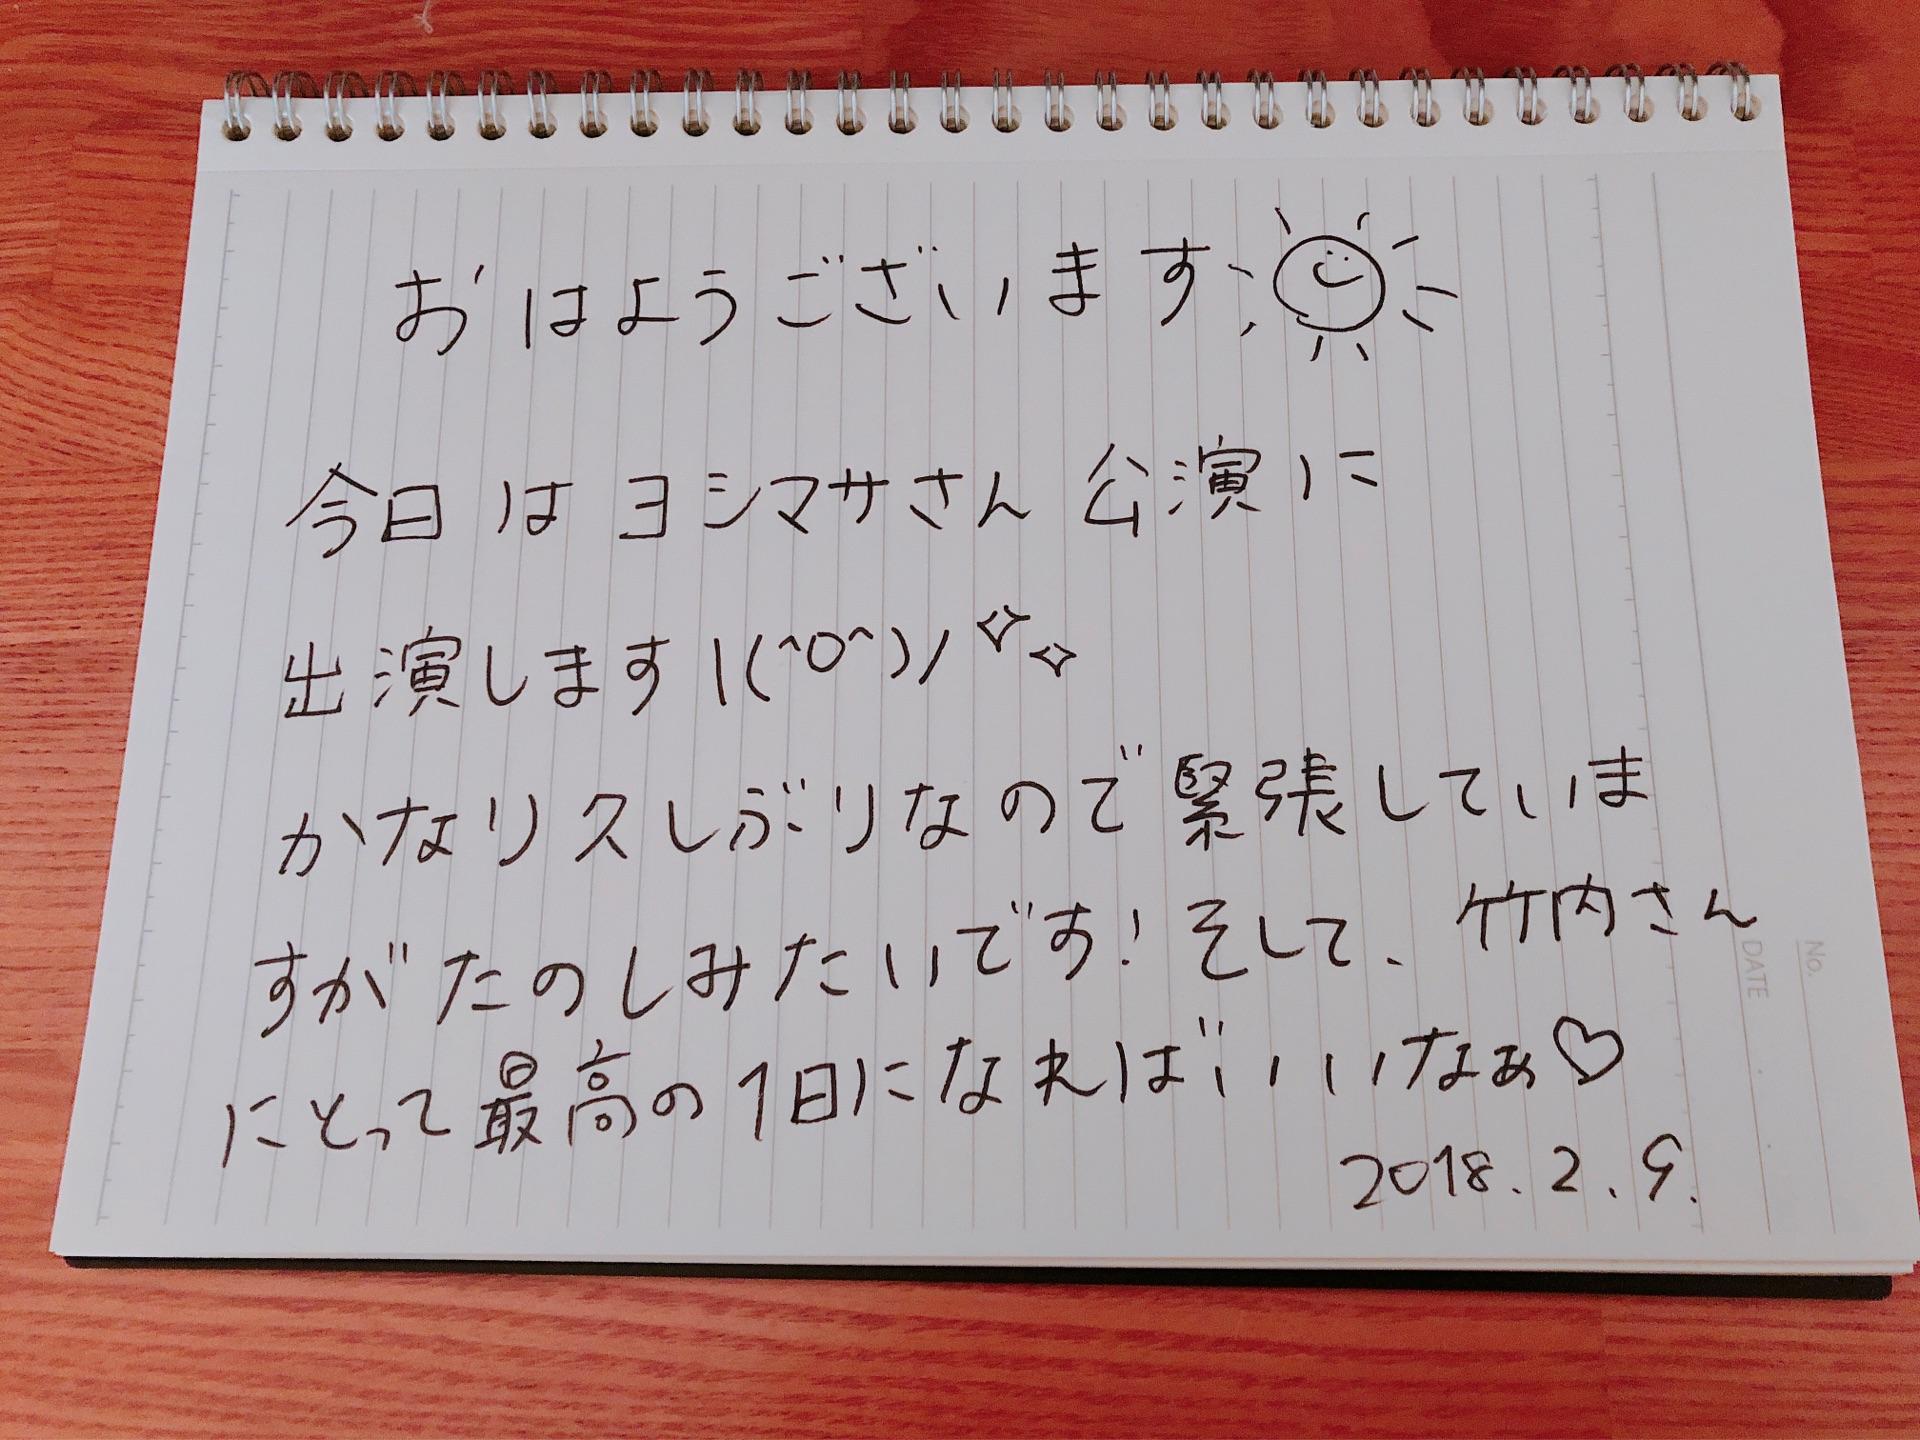 おはようございます
今日はヨシマサさん公演に
出演します\(^o^)/
かなり久しぶりなので緊張していま
すがたのしみたいです！そして、竹内さん
にとって最高の1日になればいいなぁ♡
2018.2.9.
No.
DATE